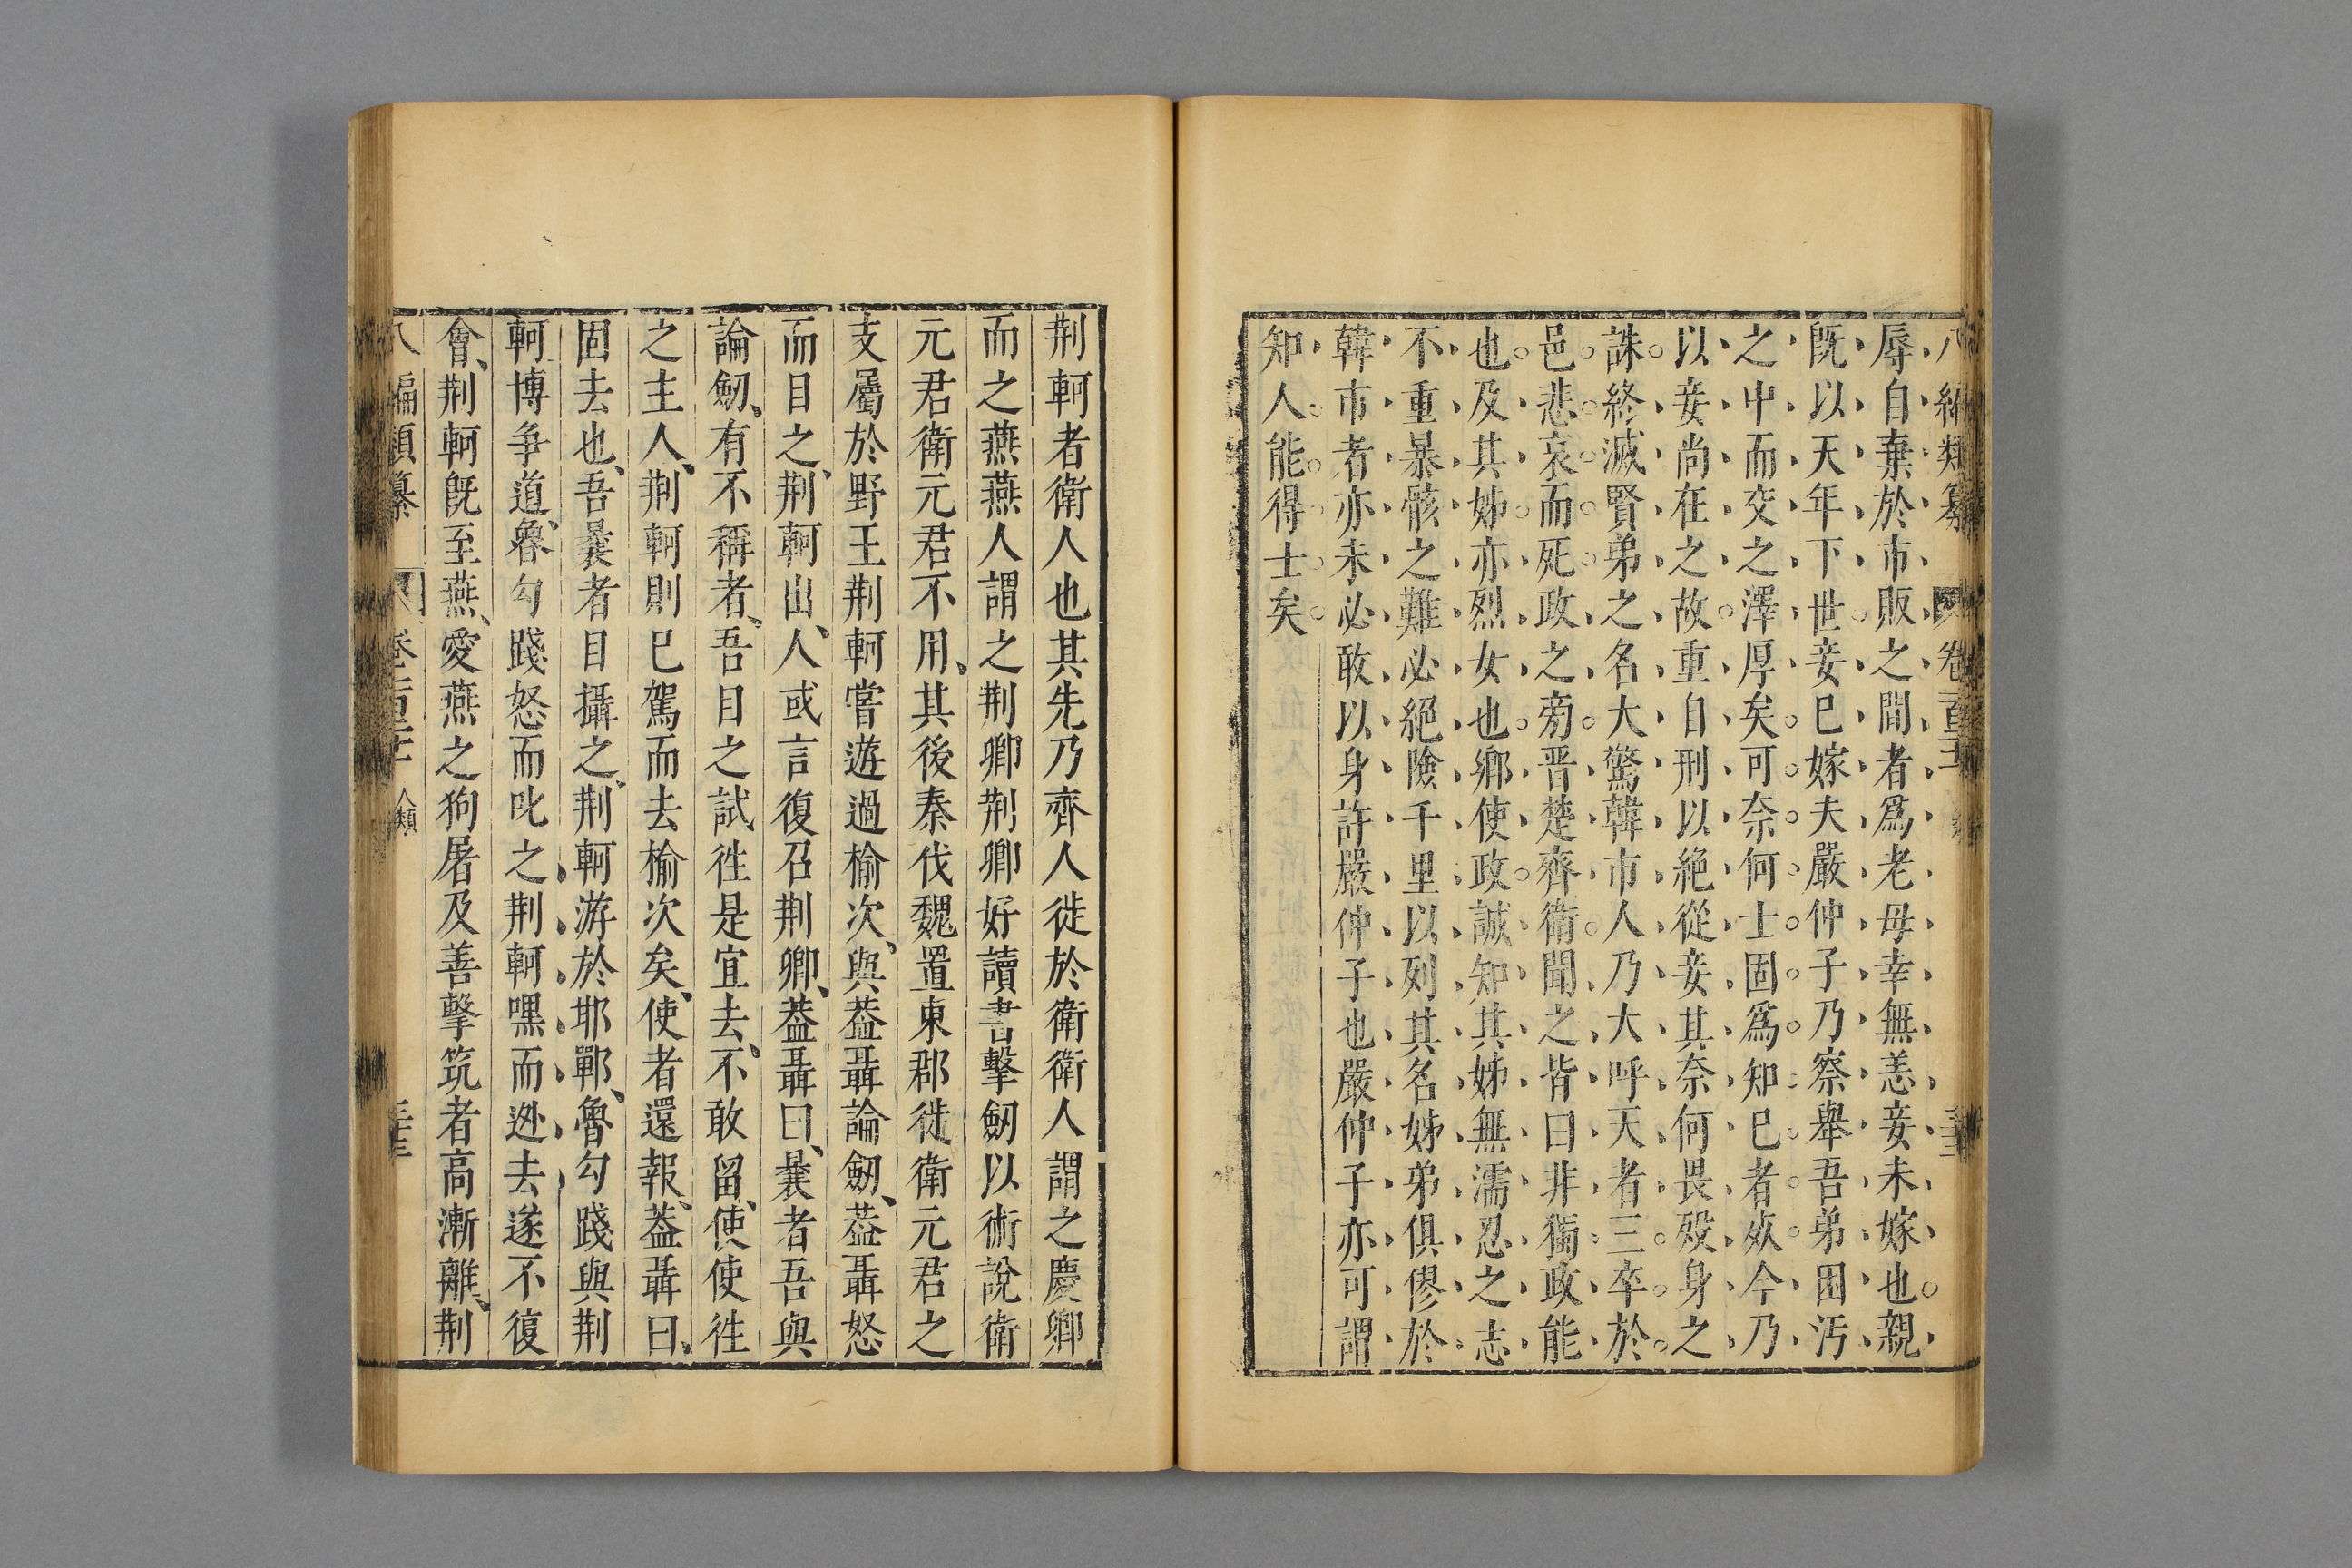 八編類纂 卷二百三十
辱自棄於市販之間者爲老母幸無恙妾未嫁也親
旣以天年下世妾已嫁夫嚴仲子乃察舉吾弟困汚
之中而交之澤厚矣可奈何士固爲知已者𣦸今乃
以妾尚在之故重自刑以絶從妾其奈何畏殁身之
誅終滅賢弟之名大驚韓市人乃大呼天者三卒於
邑悲哀而死政之旁晋楚齊衛聞之皆曰非獨政能
也及其姊亦烈女也鄉使政誠知其姊無濡忍之志
不重暴骸之難必絕險千里以列其名姊弟俱僇於
韓市者亦未必敢以身許嚴仲子也嚴仲子亦可謂
知人能得士矣
荆軻者衛人也其先乃齊人徙於衛衛人謂之慶卿
而之燕燕人謂之荆卿荆卿好讀書擊劒以術說衛
元君衛元君不用其後秦伐魏置東郡徙衛元君之
支屬於野王荆軻嘗遊過榆次與葢聶論劒葢聶怒
而目之荆軻出人或言復召荆卿葢聶曰曩者吾與
論劒有不稱者吾目之試徃是宜去不敢留使使徃
之主人荆軻則已駕而去榆次矣使者還報葢聶曰
固去也吾曩者目攝之荆軻游於邯鄲魯勾踐與荆
軻博争道魯勾踐怒而叱之荆軻嘿而逊去遂不復
會荆軻旣至燕愛燕之狗屠及善擊筑者高漸離荆
八編類纂 人類